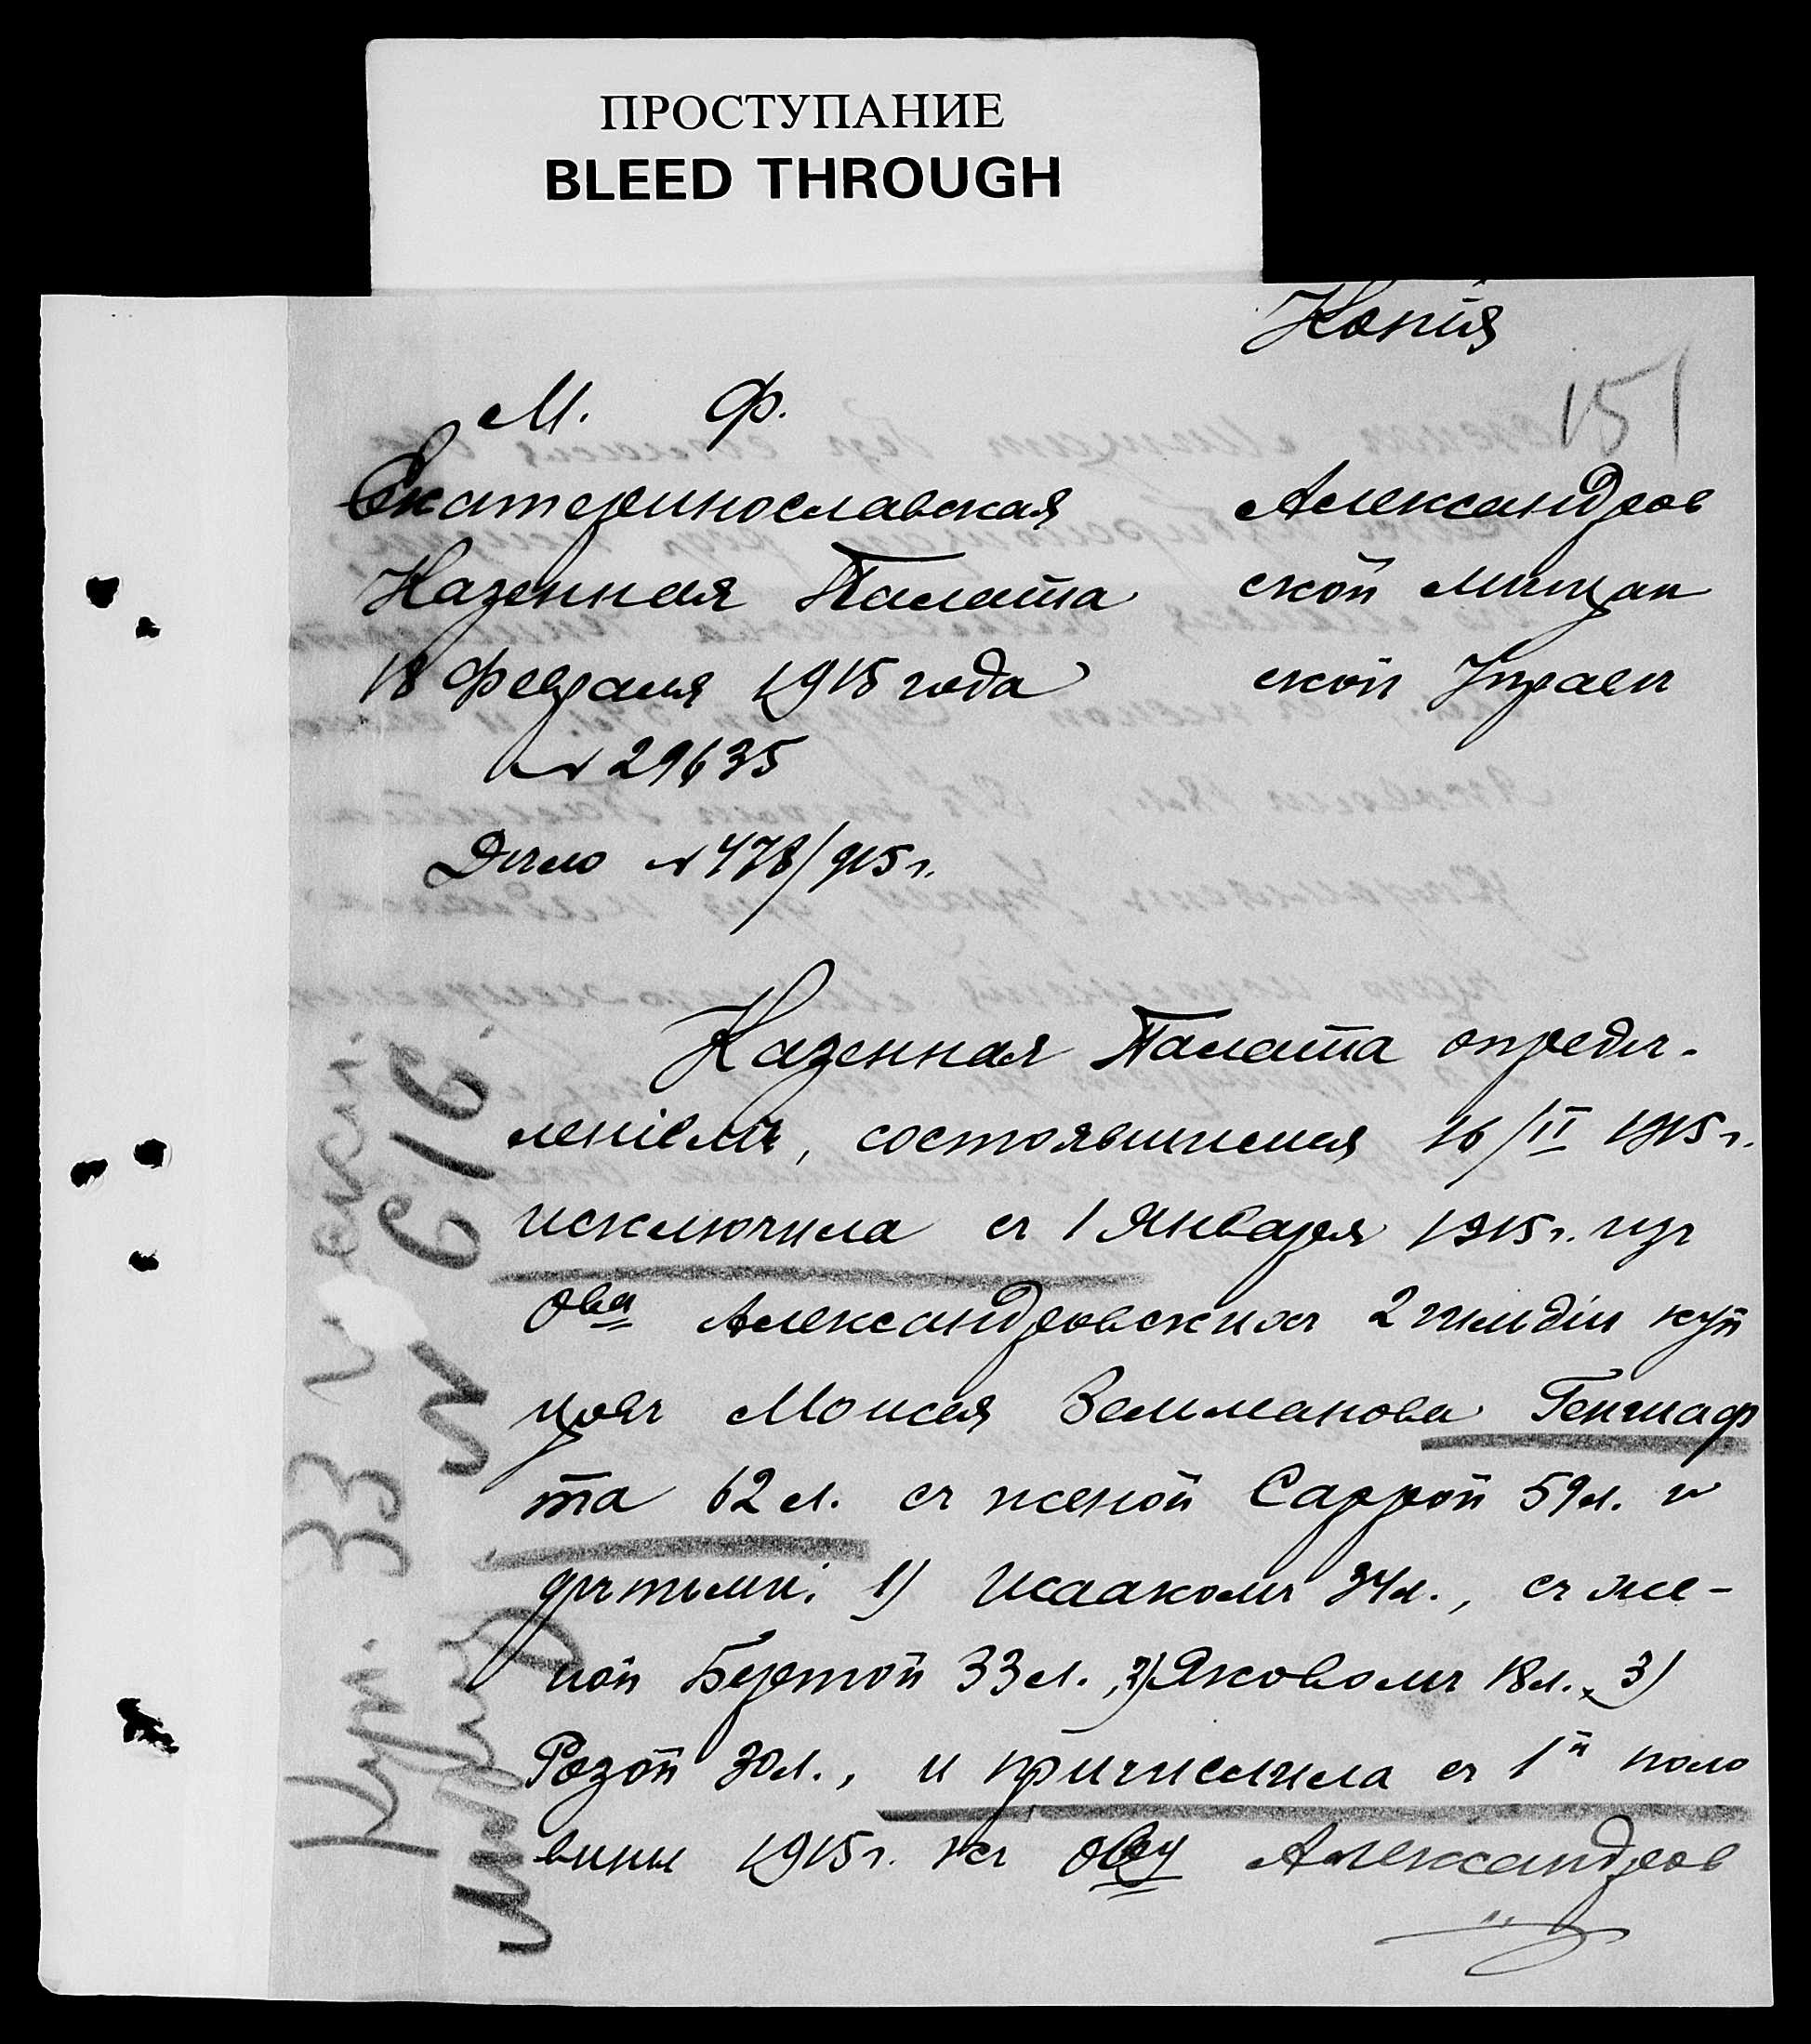 ПРОСТУПАНИЕ
BLEED THROUGH
Копія
151
М. Ф.
Екатеринославская
Казенная Палата
18 Февраля 1915 года
№ 29635
Дѣло № 478/915 г.
Александров
ской Мѣщан
ской Управѣ
Казенная Палата опредѣ-
леніемъ, состоявшимся 16/II 1915 г.
исключила съ 1 Января 1915 г. изъ
ова Александровскихъ 2 гильдіи куп
цовъ Моисея Залманова Геншаф
та 62 л. съ женой Саррой 59 л. и
дѣтьми: 1) Исаакомъ 34 л., съ же-
ной Бертой 33 л., 2) Яковомъ 18 л., 3)
Розой 30 л., и причислила съ 1й поло
вины 1915 г. къ ову Александров
№ 616
33